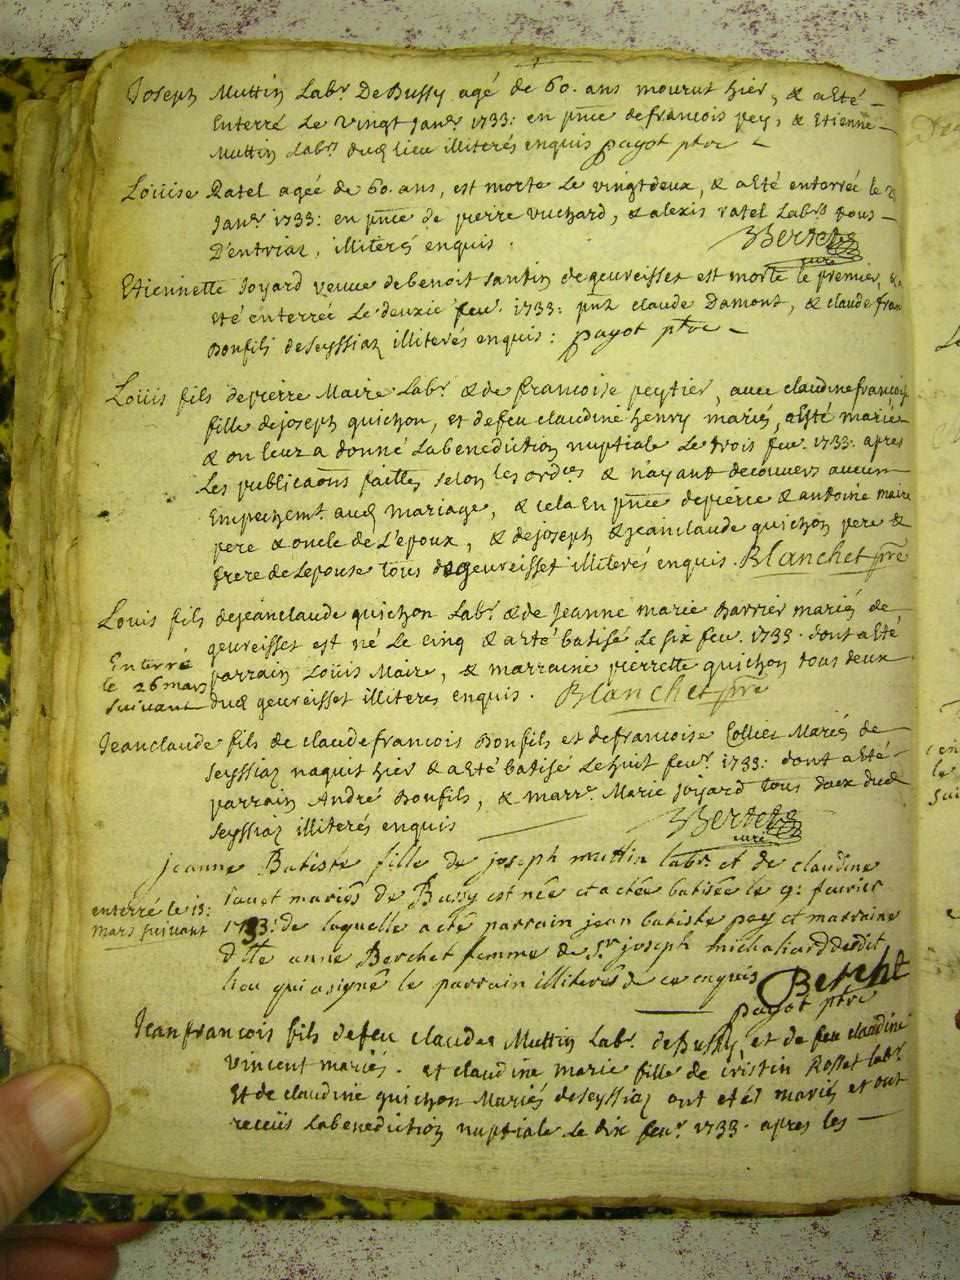 Joseph Muttin Labr. De Bussy agé de 60. ans mourut hier, & a Eté
Enterré Le vingt Janr. 1733: en pnce de francois pey, & Etienne
Muttin Labrs dud lieu illiterés enquis payot ptre
Loüise Ratel ageé de 60. ans, est morte Le vingt deux, & a Eté enterrée le 23
Janr. 1733: en pnce de pierre vuchard, & alexis ratel Labrs tous
D'entriaz, illiterés enquis.
Berthet
curé
Etiennette Joyard veuve de benoit santin de geureisset est morte le premier, & a
eté enterrée Le deuxie feur. 1733: pnt claude Damont, & claude fran
Bonfils de Seyssiaz illiterés enquis: payot ptre
Loüis fils de pierre Maire Labr. & de francoise peytier, avec claudine francoise
fille de joseph quichon, et de feu claudine henry mariés, a Eté marié
& on leur a donné La benediction nuptiale Le trois feur. 1733. apres
Les publicaons faittes selon les ordces & n'ayant decouvers aucun
Empechemt. aud mariage, & cela En pnce de pierre & antoine maire
pere & oncle de L'epoux, & de joseph & jeanclaude quichon pere &
frere de Lepouse tous de geureisset illiterés enquis. Blanchet pre
Louis fils de jeanclaude quichon Labr. & de Jeanne marie Barrier mariés de
geureisset est né Le cinq & a eté batisé Le six feur. 1733. dont a Eté
parrain Loüis Maire, & marraine pierrette quichon tous deux
dud geureisset illiteres enquis. Blanchet pre
Enterré
le 26 mars
suivant
Jeanclaude fils de claude francois Bonfils et de francoise Collier Mariés de
Seyssiaz naquit hier & a eté batisé Le huit feur. 1733: dont a Eté
parrain André Bonfils, & marre. Marie joyard tous deux dud
Seyssiaz illiterés enquis
Berthet
curé
jeanne Batiste fille de joseph muttin labr. et de claudine
mariés de Bussy est née et a eté batisée le 9: fevrier
1733: de laquelle a eté parrain jean batiste pey et marraine
dlle anne Berchet femme de Sr joseph michaliard dudit
lieu qui a signé le parrain illiteres de ce enquis Berchet
payot ptre
enterré le 13:
mars suivant
Jean francois fils de feu claude Muttin Labr. de Bussy et de feu claudine
vincent mariés. et claudine marie fille de cristin Rosset labr.
Et de claudine quichon Mariés de Seyssiaz ont etés mariés et ont
receüs La benediction nuptiale Le dix feur. 1733. apres les